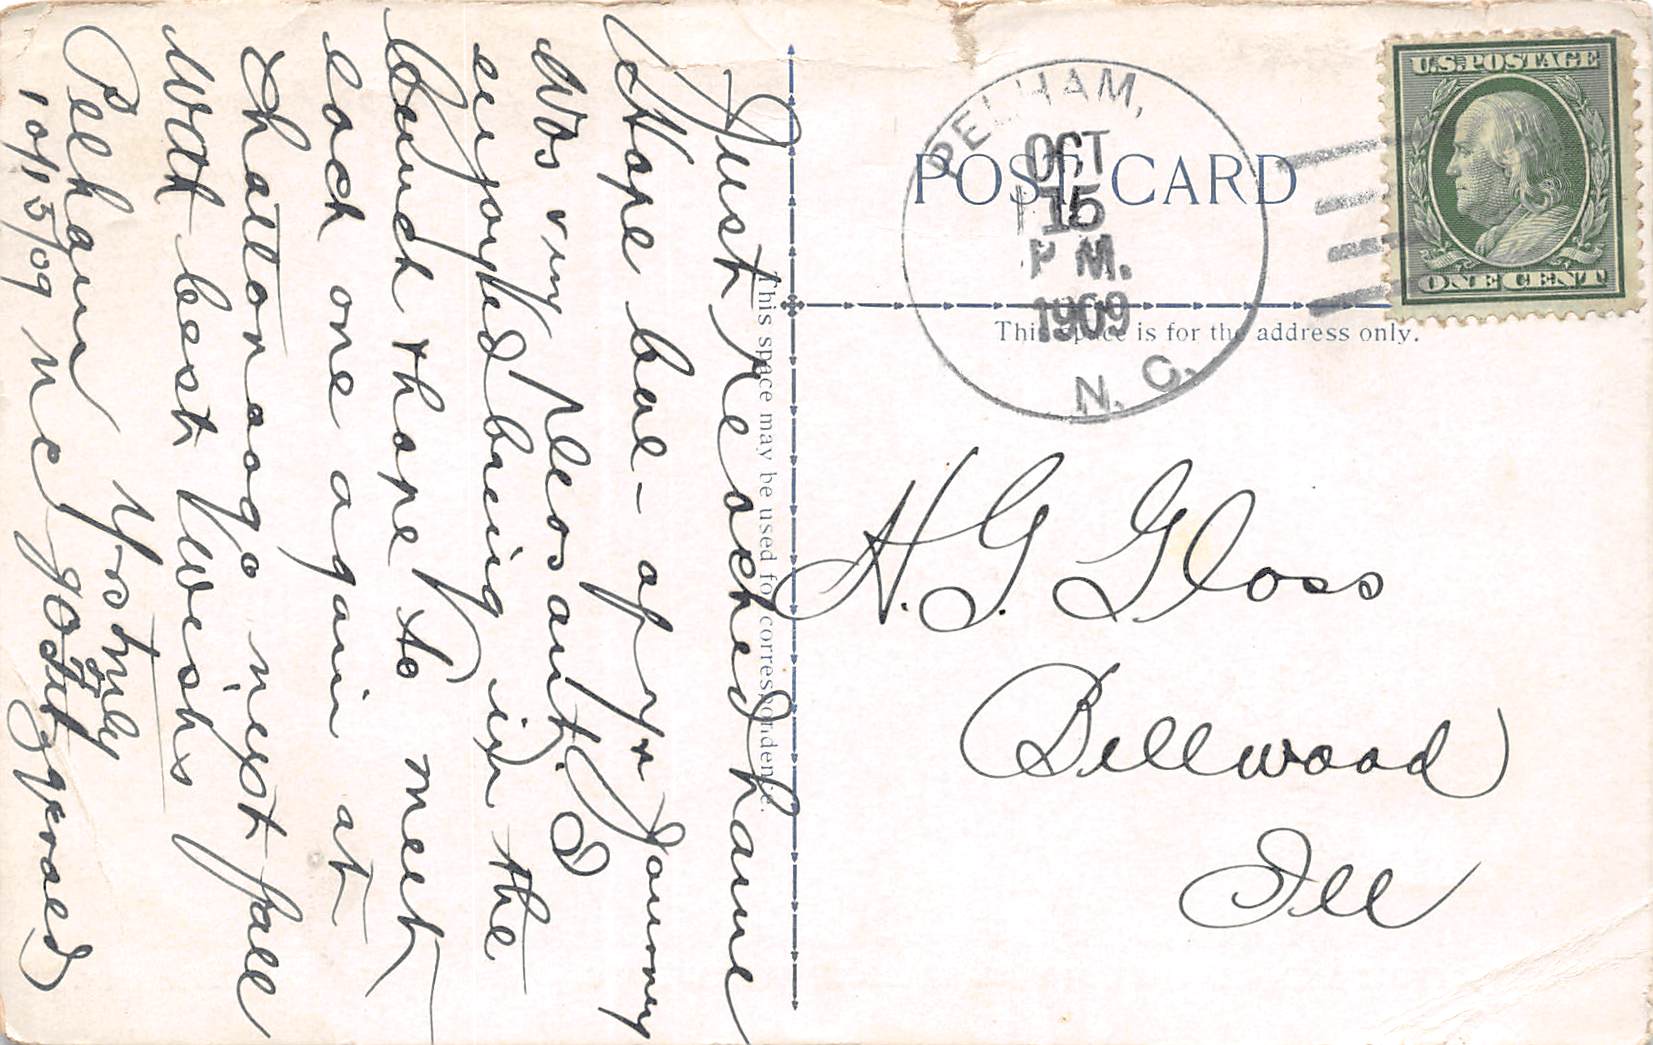 POST CARD
This space is for the address only.
This space may be used for correspondence.
U.S. POSTAGE
ONE CENT
PELHAM,
OCT
15
P M.
1909
N. C.
H. G. Gloss
Bellwood
Ill
Just Reached home
Hope bal - of yr Journey
Was very pleasant. I
enjoyed being in the
bunch & hope to meet
each one again at
Chattanooga next fall
With best Wishs
Yos truly
Pelham
10/15/09 N C